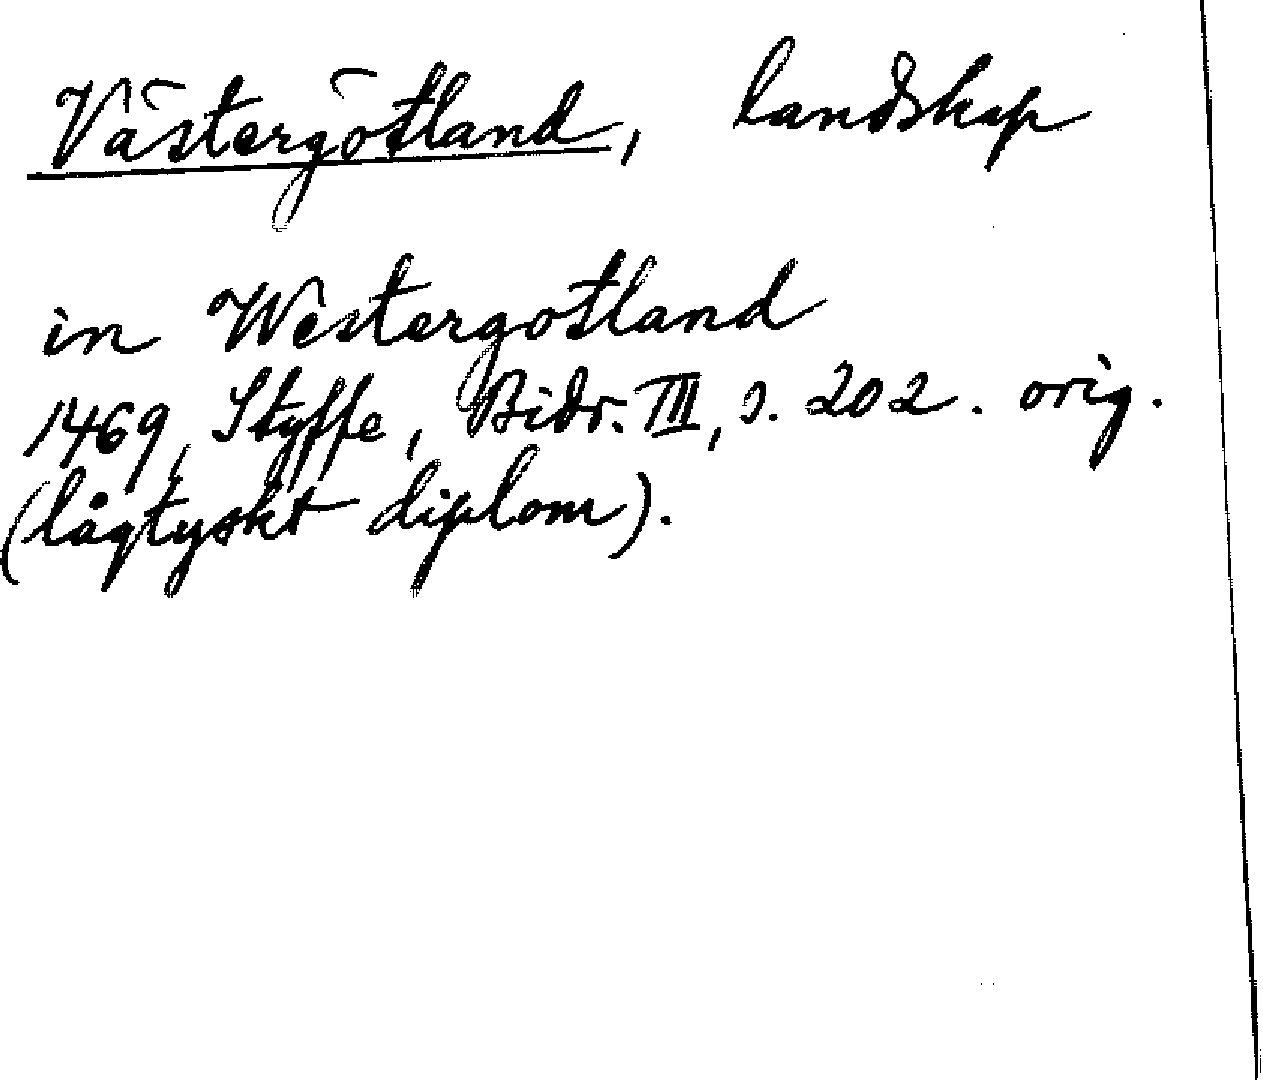 Västergötland, landskap
in Westergotland
1469, Styffe, Bidr. III, s. 202. orig.
(lågtyskt diplom).